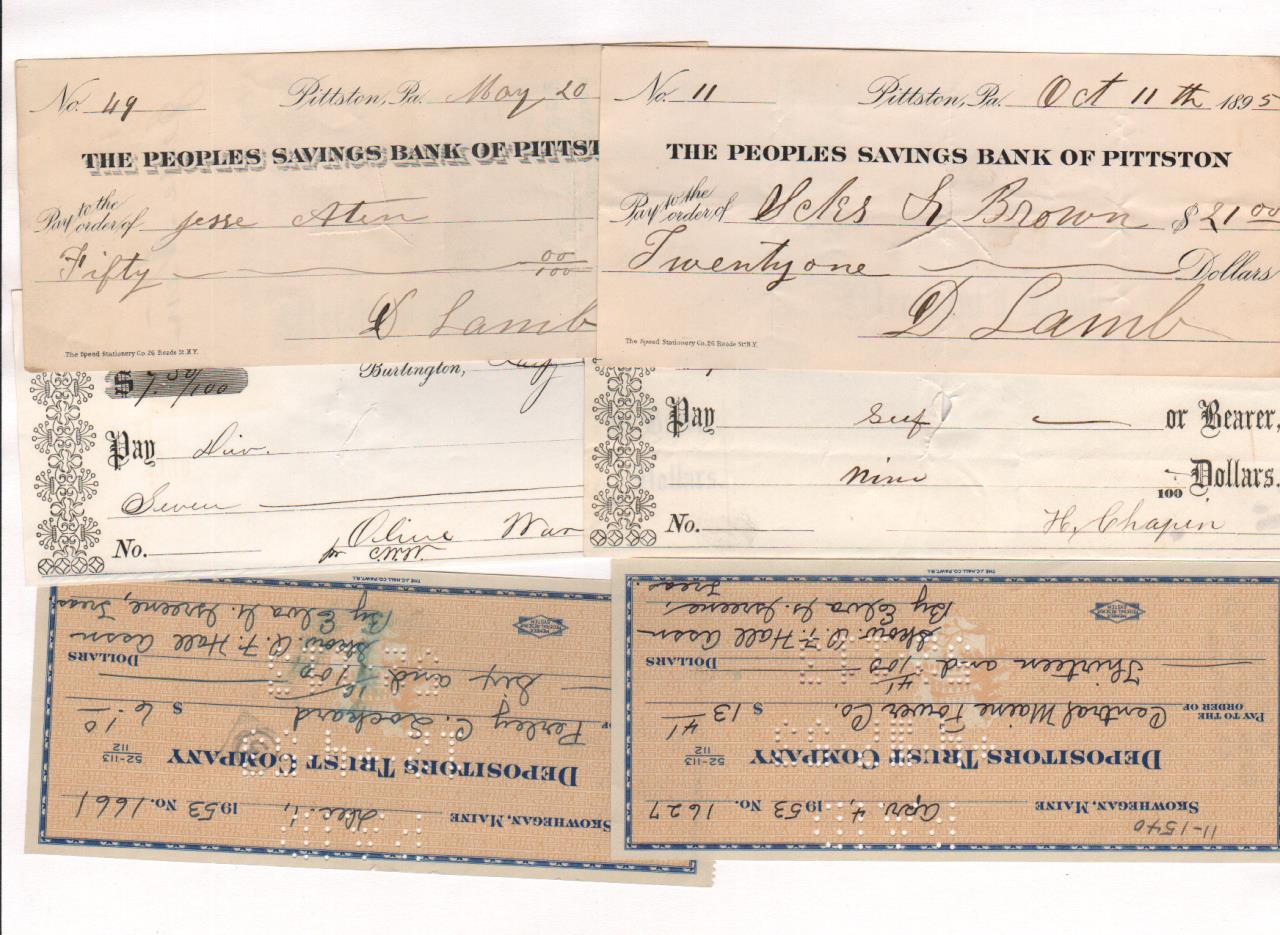 No. 49 Pittston, Pa. May 20
THE PEOPLES SAVINGS BANK OF PITTST
Pay to the order of Jesse Aten
Fifty 00/100
D Lamb
The Speed Stationery Co. 26 Reade St. N.Y.
No. 11 Pittston, Pa. Oct 11th 1895
THE PEOPLES SAVINGS BANK OF PITTSTON
Pay to the order of L Brown $21 00
Twenty one Dollars
D. Lamb
The Speed Stationery Co. 26 Reade St. N.Y.
$ 7.00/100 Burlington,
Pay Div.
Seven
No. Olive War
for
Pay Self or Bearer,
Nine 100 Dollars.
No. H. Chapin
THE J.C. HALL CO. PAWT. R.I.
SKOWHEGAN, MAINE Dec. 1, 1953 No. 1661
DEPOSITORS TRUST COMPANY 52-113 112
OF Perley C. Lockard $ 6 10
Six and 10/100 DOLLARS
Skow. O. F. Hall Assn
By Elva G. Greene, Treas
MEMBER FEDERAL RESERVE SYSTEM
THE J.C. HALL CO. PAWT. R.I.
11-1540
SKOWHEGAN, MAINE Apr 4, 1953 No. 1627
DEPOSITORS TRUST COMPANY 52-113 112
PAY TO THE ORDER OF Central Maine Power Co. $ 13 41
Thirteen and 41/100 DOLLARS
Skow. O. F. Hall Assn
By Elva G. Greene,
Treas.
MEMBER FEDERAL RESERVE SYSTEM